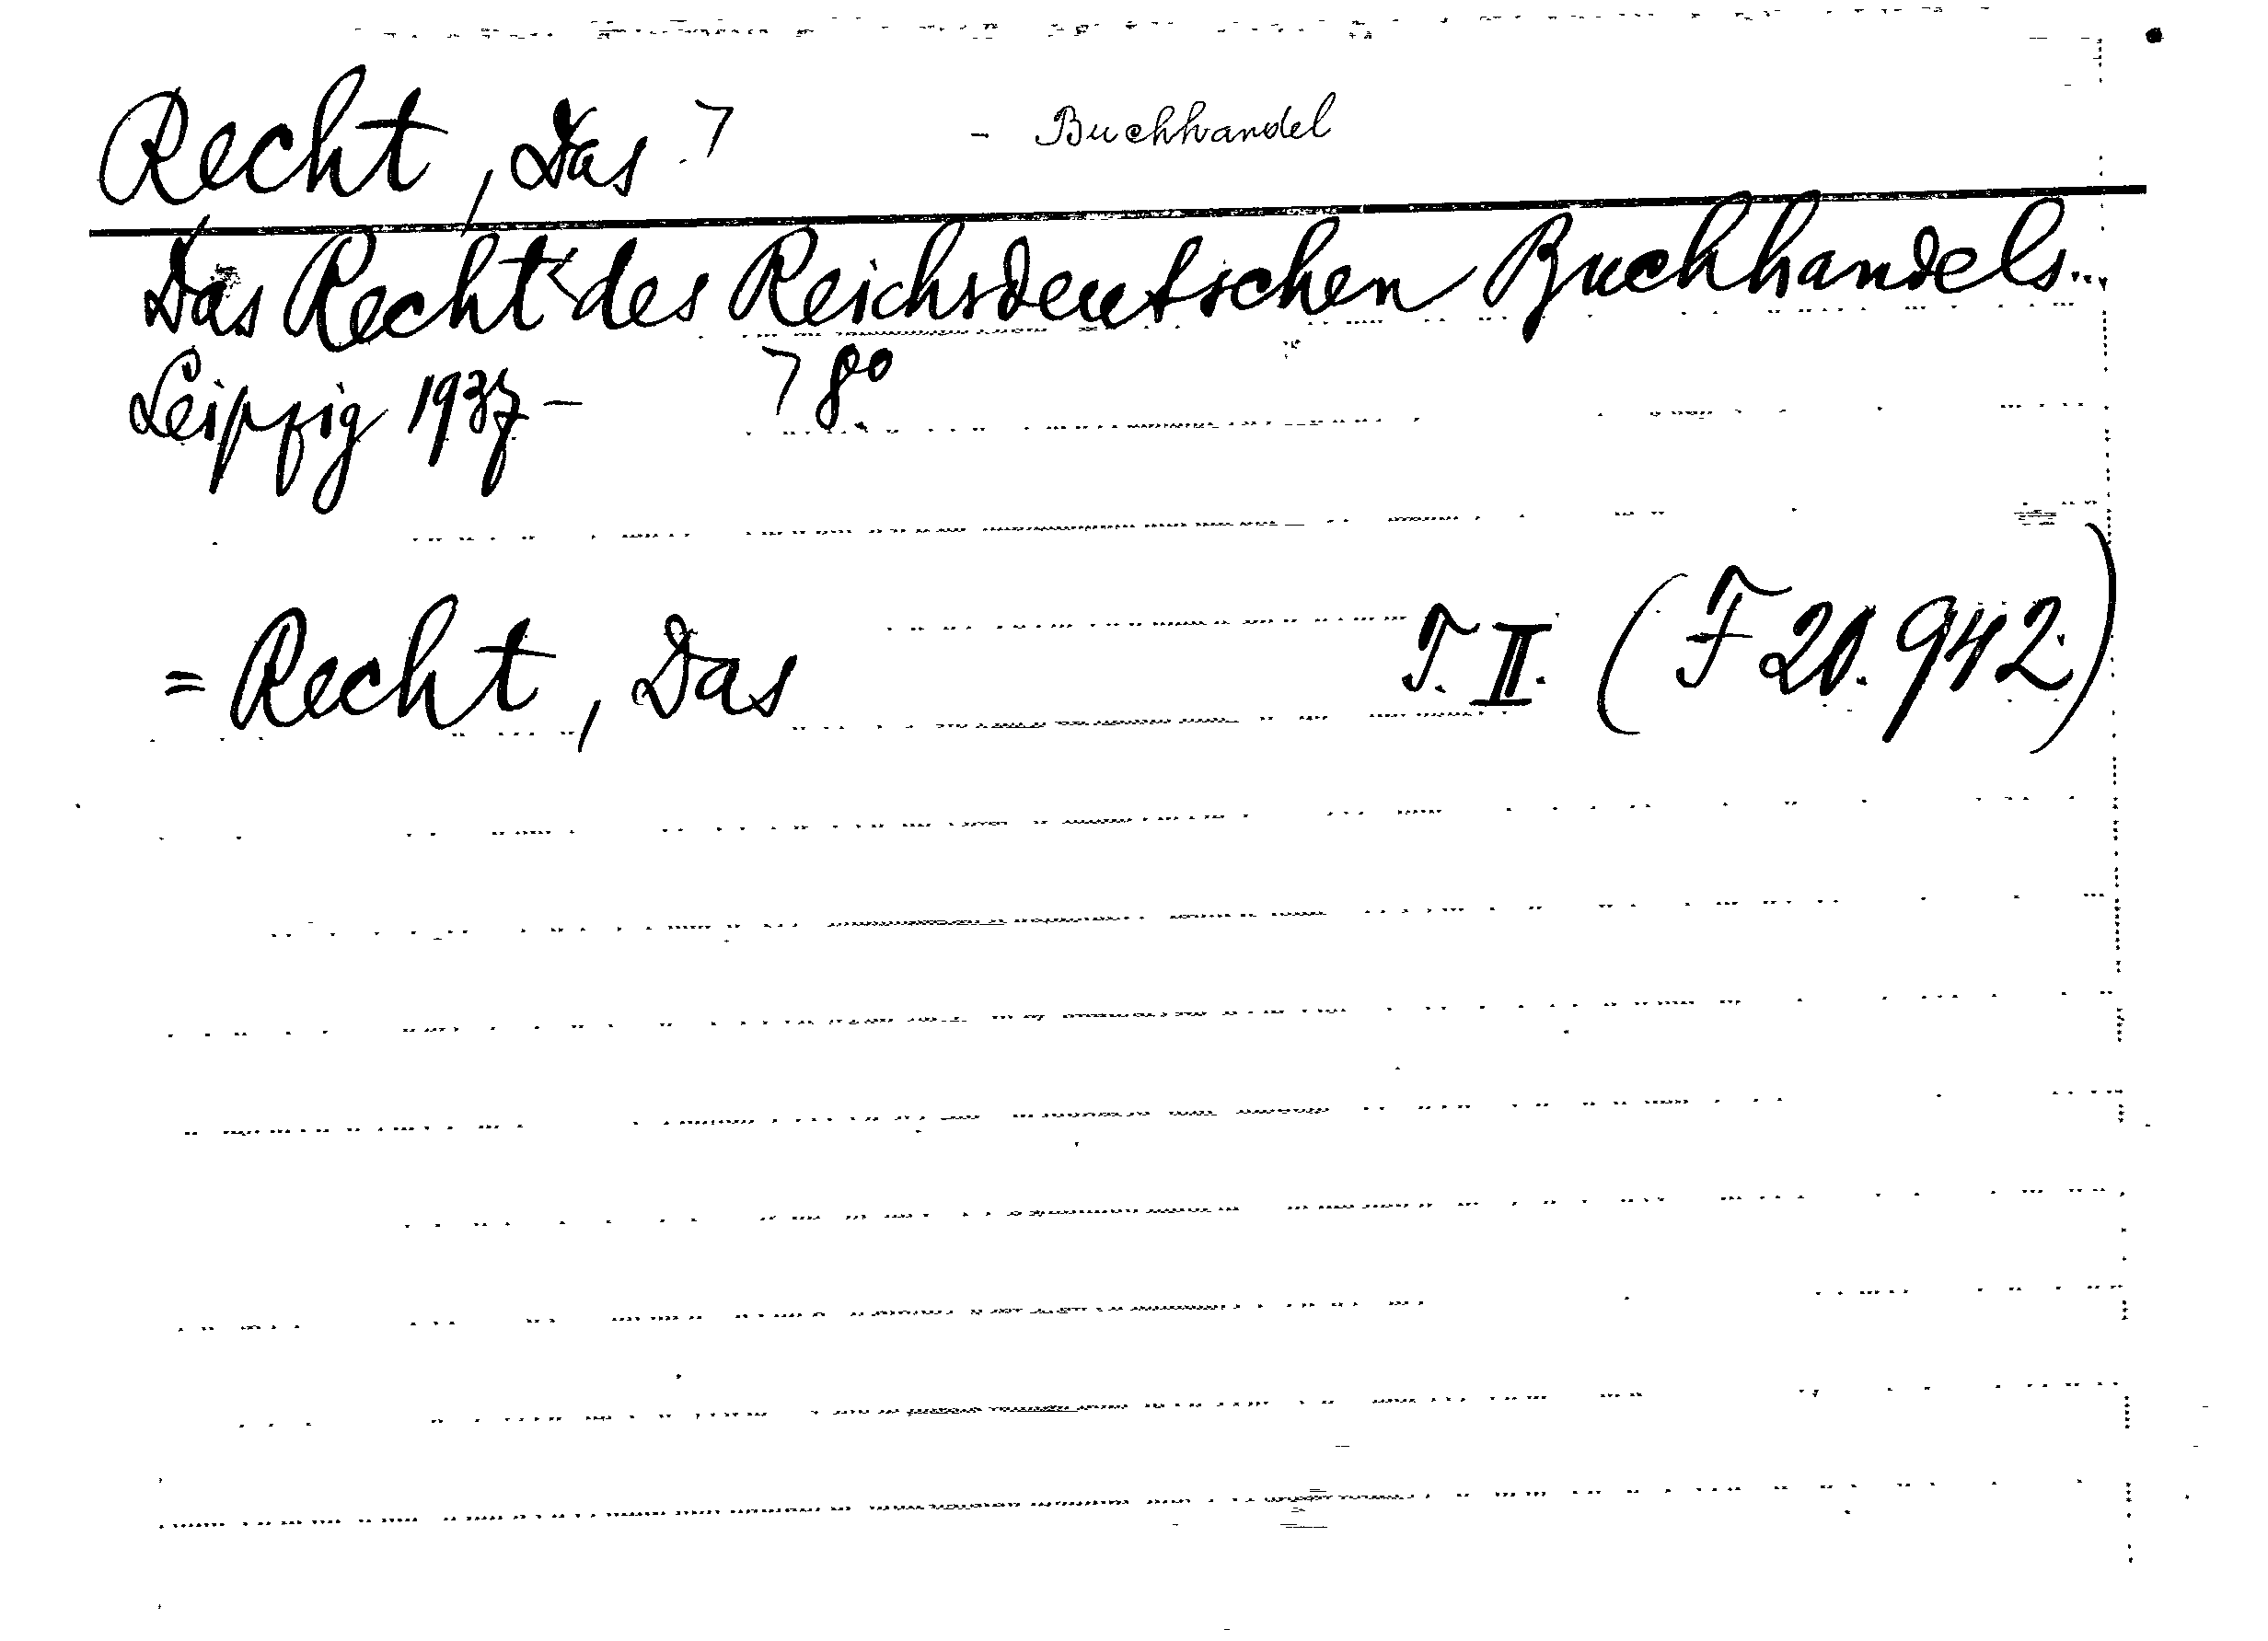 Recht, Das ⁊ - Buchhandel
Das Recht des Reichsdeutschen Buchhandels...
Leipzig 1937- ⁊ 8°
= Recht, Das T. II. (F 20.942)